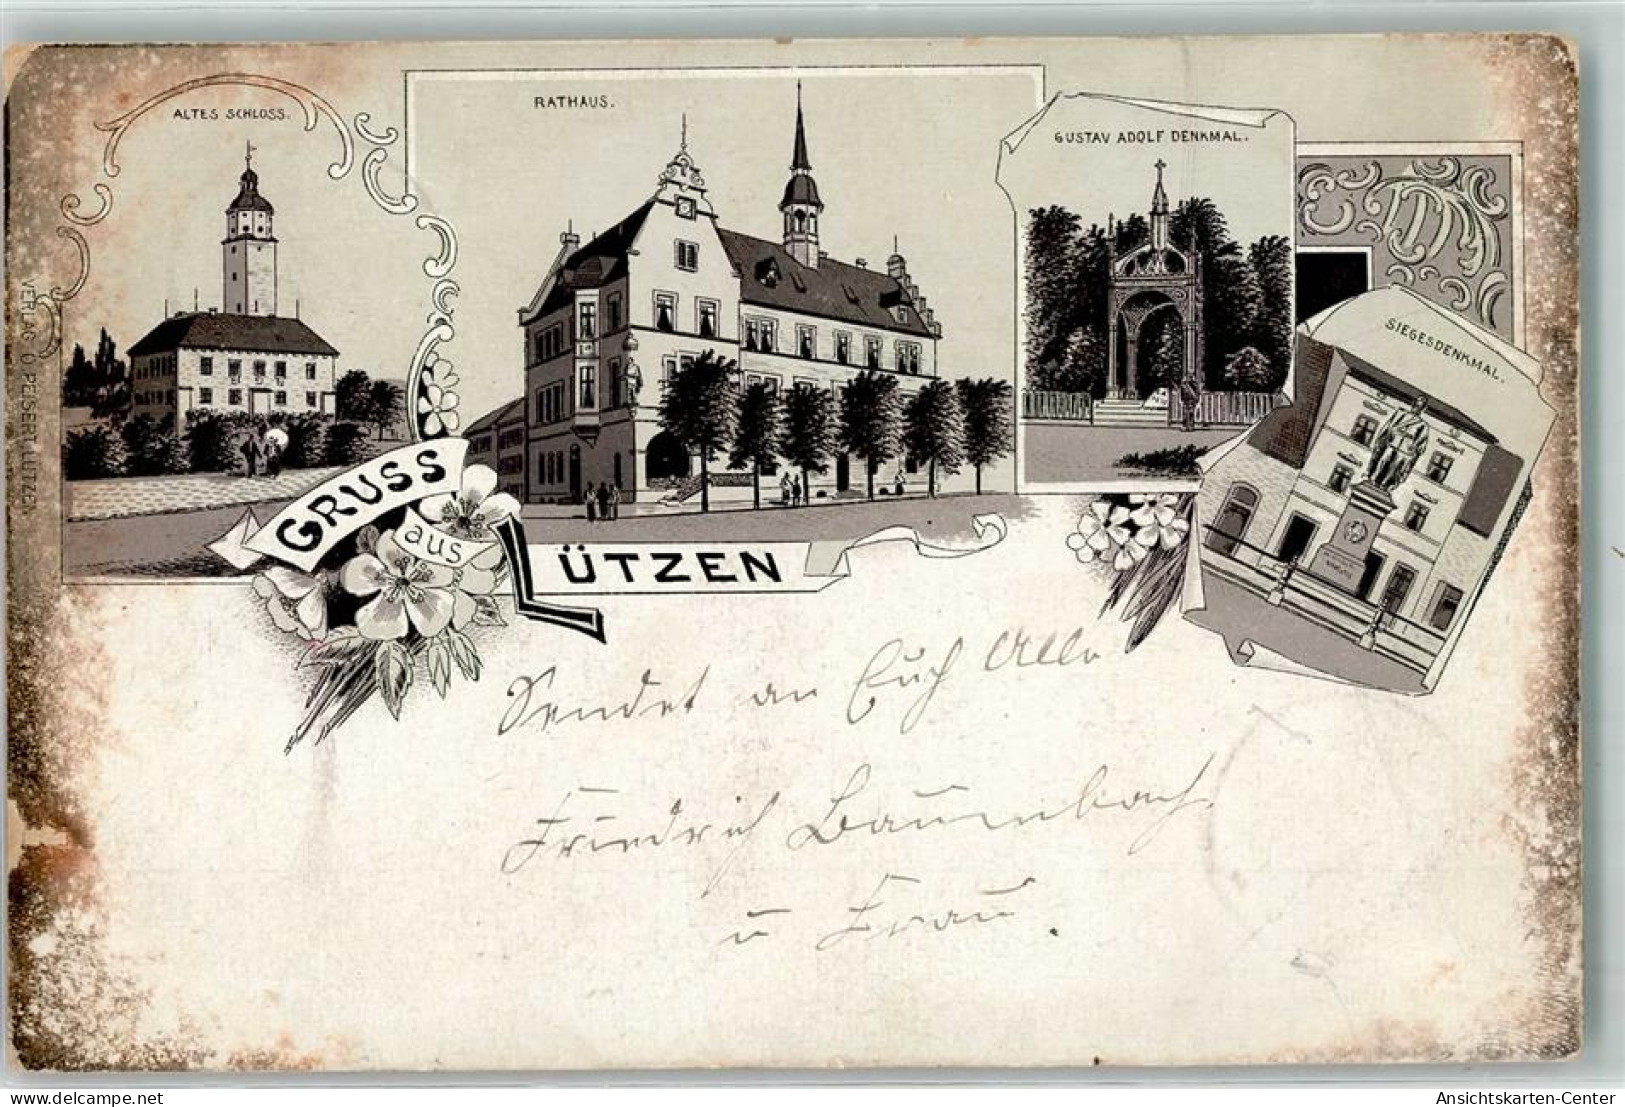 ALTES SCHLOSS.
RATHAUS.
GUSTAV ADOLF DENKMAL.
SIEGESDENKMAL.
VERLAG O. PEISERT LÜTZEN
GRUSS
aus
LÜTZEN
Sendet an Euch Alle
Friedrich Baumbach
u Frau.
delcampe.net
Ansichtskarten-Center